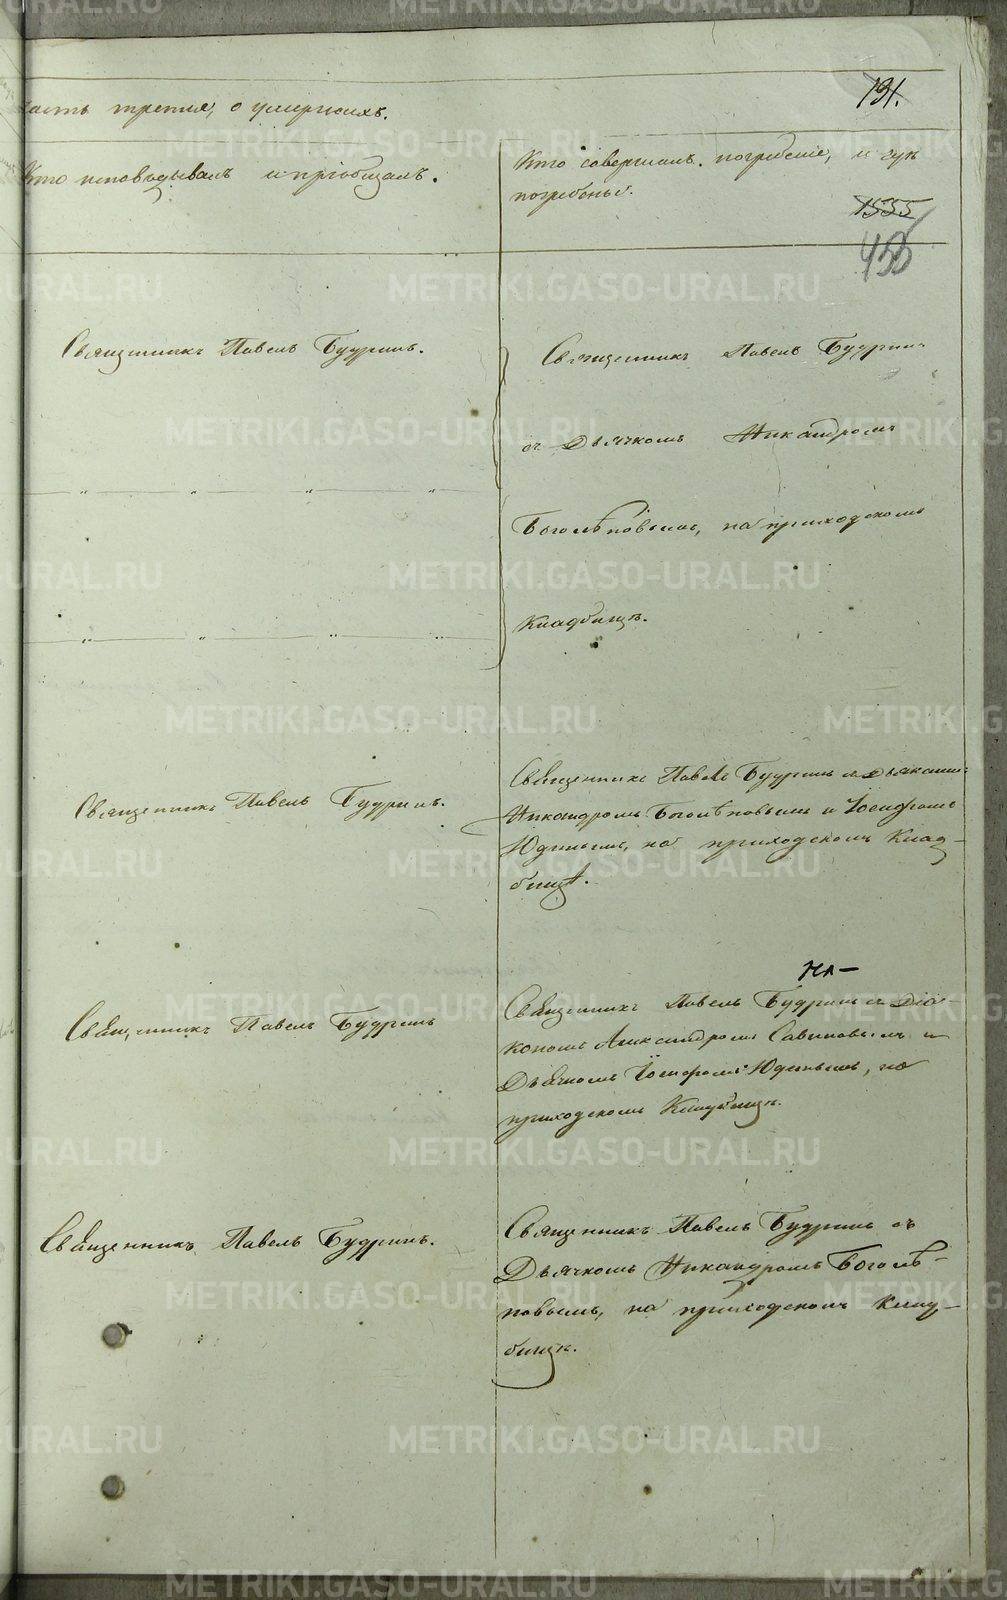 191.
часть третия, о умершихъ.
Кто исповѣдывалъ и пріобщалъ.
Кто совершалъ погребеніе, и гдѣ
погребены.
1535
455
Священникъ Павелъ Будринъ.
Священникъ Павелъ Будринъ
съ Дьячкомъ Никандромъ
Боголѣповымъ, на приходскомъ
Кладбищѣ.
Священникъ Павелъ Будринъ.
Священникъ Павелъ Будринъ съ дьячками
Никандромъ Боголѣповымъ и Іосифомъ
Юдинымъ, на приходскомъ Клад-
бищѣ.
Священникъ Павелъ Будринъ
На-
Священникъ Павелъ Будринъ съ Діа-
кономъ Александромъ Савиновымъ и
Дьячкомъ Іосифомъ Юдинымъ, на
приходскомъ Кладбищѣ.
Священникъ Павелъ Будринъ.
Священникъ Павелъ Будринъ съ
Дьячкомъ Никандромъ Боголѣ-
повымъ, на приходскомъ Клад-
бищѣ.
METRIKI.GASO-URAL.RU